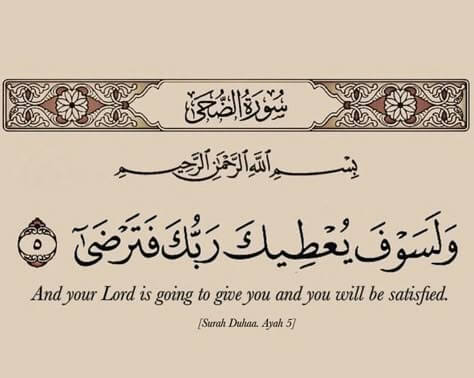 سُورَةُ الضُّحَىٰ
بِسْمِ اللَّهِ الرَّحْمَٰنِ الرَّحِيمِ
وَلَسَوْفَ يُعْطِيكَ رَبُّكَ فَتَرْضَىٰٓ ٥
And your Lord is going to give you and you will be satisfied.
[Surah Duhaa. Ayah 5]